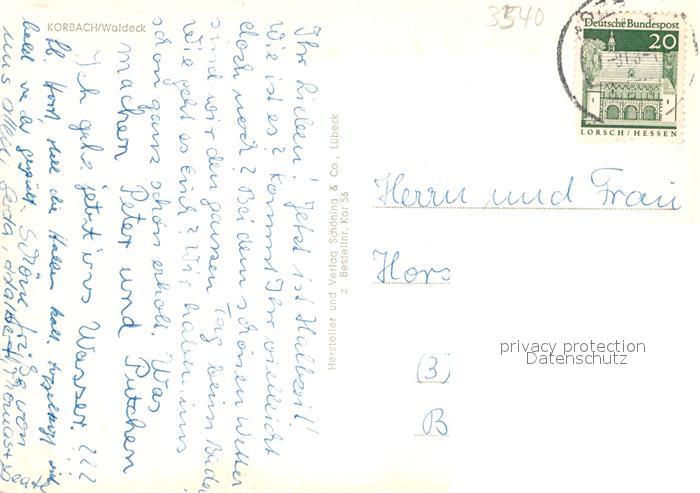 KORBACH/Waldeck
3540
Deutsche Bundespost
20
LORSCH/HESSEN
Ihr Lieben! Jetzt ist Halbzeit!
Wie ist es? Kommt Ihr vielleicht
doch noch? Bei dem schönen Wetter
sind wir den ganzen Tag beim Baden
Wie geht es Euch? Wir haben uns
schon ganz schön erholt. Was
machen Peter und Putchen
Ich gehe jetzt ins Wasser. !!!
Hersteller und Verlag Schöning & Co., Lübeck
z Bestellnr. Kor 56
Herrn und Frau
Hors
(3)
B
privacy protection
Datenschutz